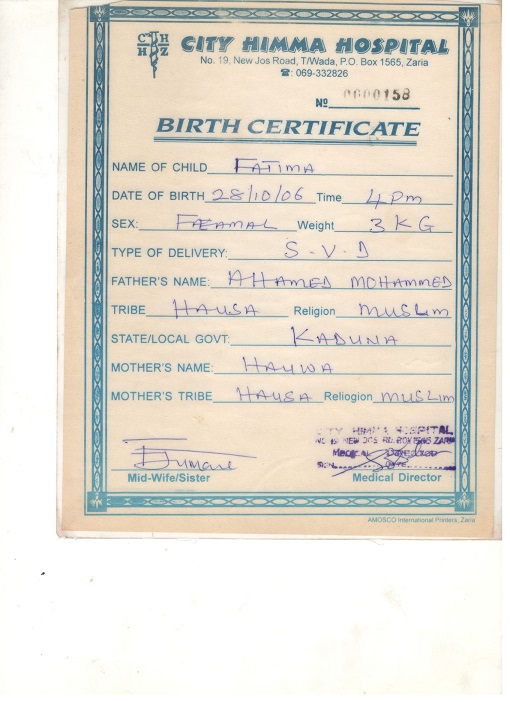 CHH
HZ
CITY HIMMA HOSPITAL
No. 19, New Jos Road, T/Wada, P.O. Box 1565, Zaria
☎: 069-332826
No 0000158
BIRTH CERTIFICATE
NAME OF CHILD FATIMA
DATE OF BIRTH 28/10/06 Time 4pm
SEX: FEAMAL Weight 3 KG
TYPE OF DELIVERY: S.V.D
FATHER'S NAME: AHAMED MOHAMMED
TRIBE HAUSA Religion MUSLIM
STATE/LOCAL GOVT: KADUNA
MOTHER'S NAME: HAUWA
MOTHER'S TRIBE HAUSA Reliogion MUSLIM
CITY HIMMA HOSPITAL
Medical Director
Mid-Wife/Sister Medical Director
AMOSCO International Printers, Zaria